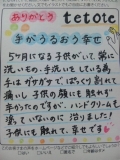 ありがとう tetote
手がうるおう幸せ
5ヶ月になる子供がいて、常に
洗いもの、手洗いをしている為
手はガサガサで、ばっくり割れて
痛いし子供の顔にも触れず
辛かったのですが、ハンドクリームを
塗っていないのに治りました!
子供にも触れて、幸せです